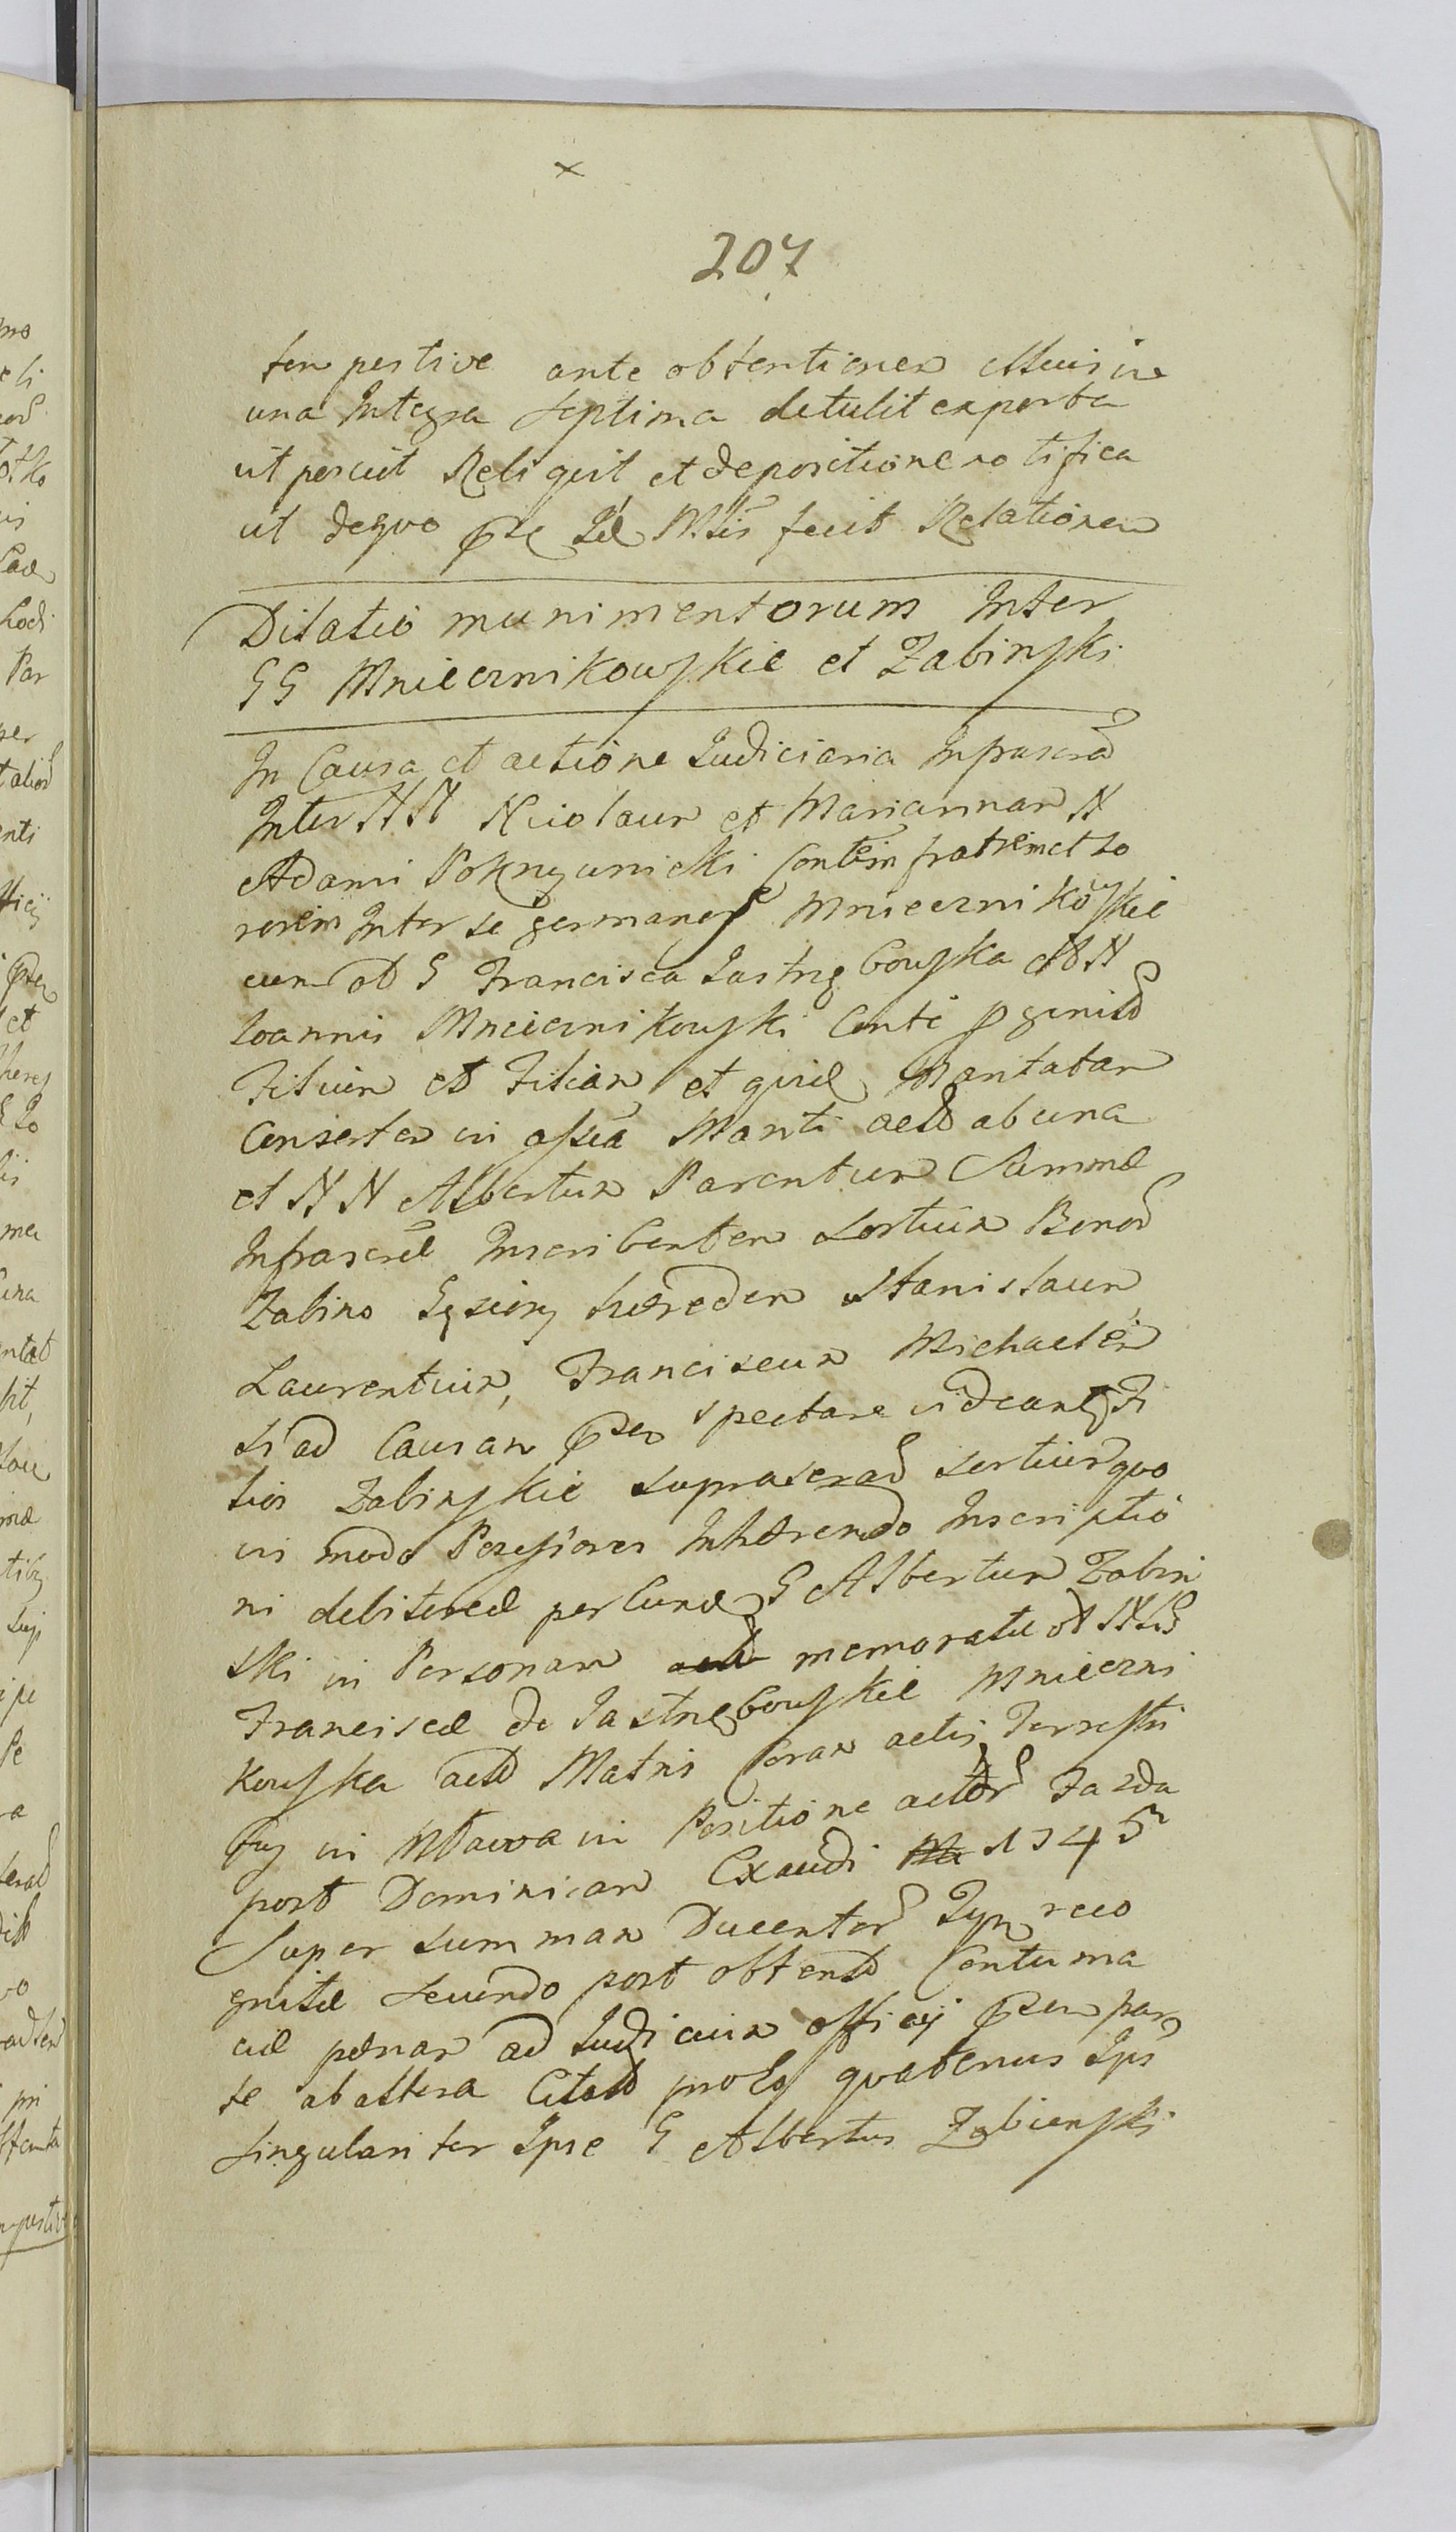 207
tempestive ante obtentionem Munim
una Integra Septima detulit exporta
vit posuit Reliquit et depositione notifica
vit de quo
fecit Relationem
Dilatio munimentorum Inter
GG Mnieeznikowskie et Zabinski
In Causa et actione Judiciaria Infrascrad
Inter NN Nicolaum et Mariannam N
Adami Pokrzywnicki Contem fratrem et so
rorem Inter se germanos Mniecznikowskie
cum olt G Francisca Jastrzębowska olt N
Joannis Mniecznikowski Conte pgenitd
Filium et Filiam, et
Consortem in assia Mariti actd ab una
et NN Albertum Parentum Summæ
Infrascræ Inscribentem Sortium Bonor
Zabino Gąsiory hæredem Stanislaum
Laurentium, Franciscum Michaelem
si ad Causam spectare videant Fi
lios Zabinskie suprascrad sortium quo
vis modo Possessores Inhærendo Inscriptio
ni debitoreæ per Eund G Albertum Zabin
ski in Personam memoratæ olt
Franciscæ de Jastrzębowskie Mnieczni
kowska actd Matris Coram actis Terrestri
bus in Mława in Positione actor Fazda
post Dominicam Exaudi 1745
Super summam Ducentor Tynf reco
gnitæ secundo post obtentd Contuma
ciæ pœnam ad Judicium officij par
te ab altera Citatd pro Eo quatenus Ips
singulariter Ipse G Albertus Zabienski